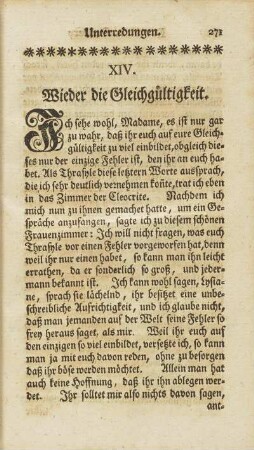 Unterredungen. 271
XIV.
Wieder die Gleichgültigkeit.
Ich sehe wohl, Madame, es ist nur gar
zu wahr, daß ihr euch auf eure Gleich-
gültigkeit zu viel einbildet, obgleich die-
ses nur der einzige Fehler ist, den ihr an euch ha-
bet. Als Thrasyle diese letztern Worte aussprach,
die ich sehr deutlich vernehmen konte, trat ich eben
in das Zimmer der Cleocrite. Nachdem ich
mich nun zu ihnen gemachet hatte, um ein Ge-
spräche anzufangen, sagte ich zu diesem schönen
Frauenzimmer: Ich will nicht fragen, was euch
Thrasyle vor einen Fehler vorgeworfen hat, denn
weil ihr nur einen habet, so kann man ihn leicht
errathen, da er sonderlich so groß, und jeder-
mann bekannt ist. Ich kann wohl sagen, Lysia-
ne, sprach sie lächelnd, ihr besitzet eine unbe-
schreibliche Aufrichtigkeit, und ich glaube nicht,
daß man jemanden auf der Welt seine Fehler so
frey heraus saget, als mir. Weil ihr euch auf
den einzigen so viel einbildet, versetzte ich, so kann
man ja mit euch davon reden, ohne zu besorgen
daß ihr böse werden möchtet. Allein man hat
auch keine Hoffnung, daß ihr ihn ablegen wer-
det. Ihr solltet mir also nichts davon sagen,
ant-